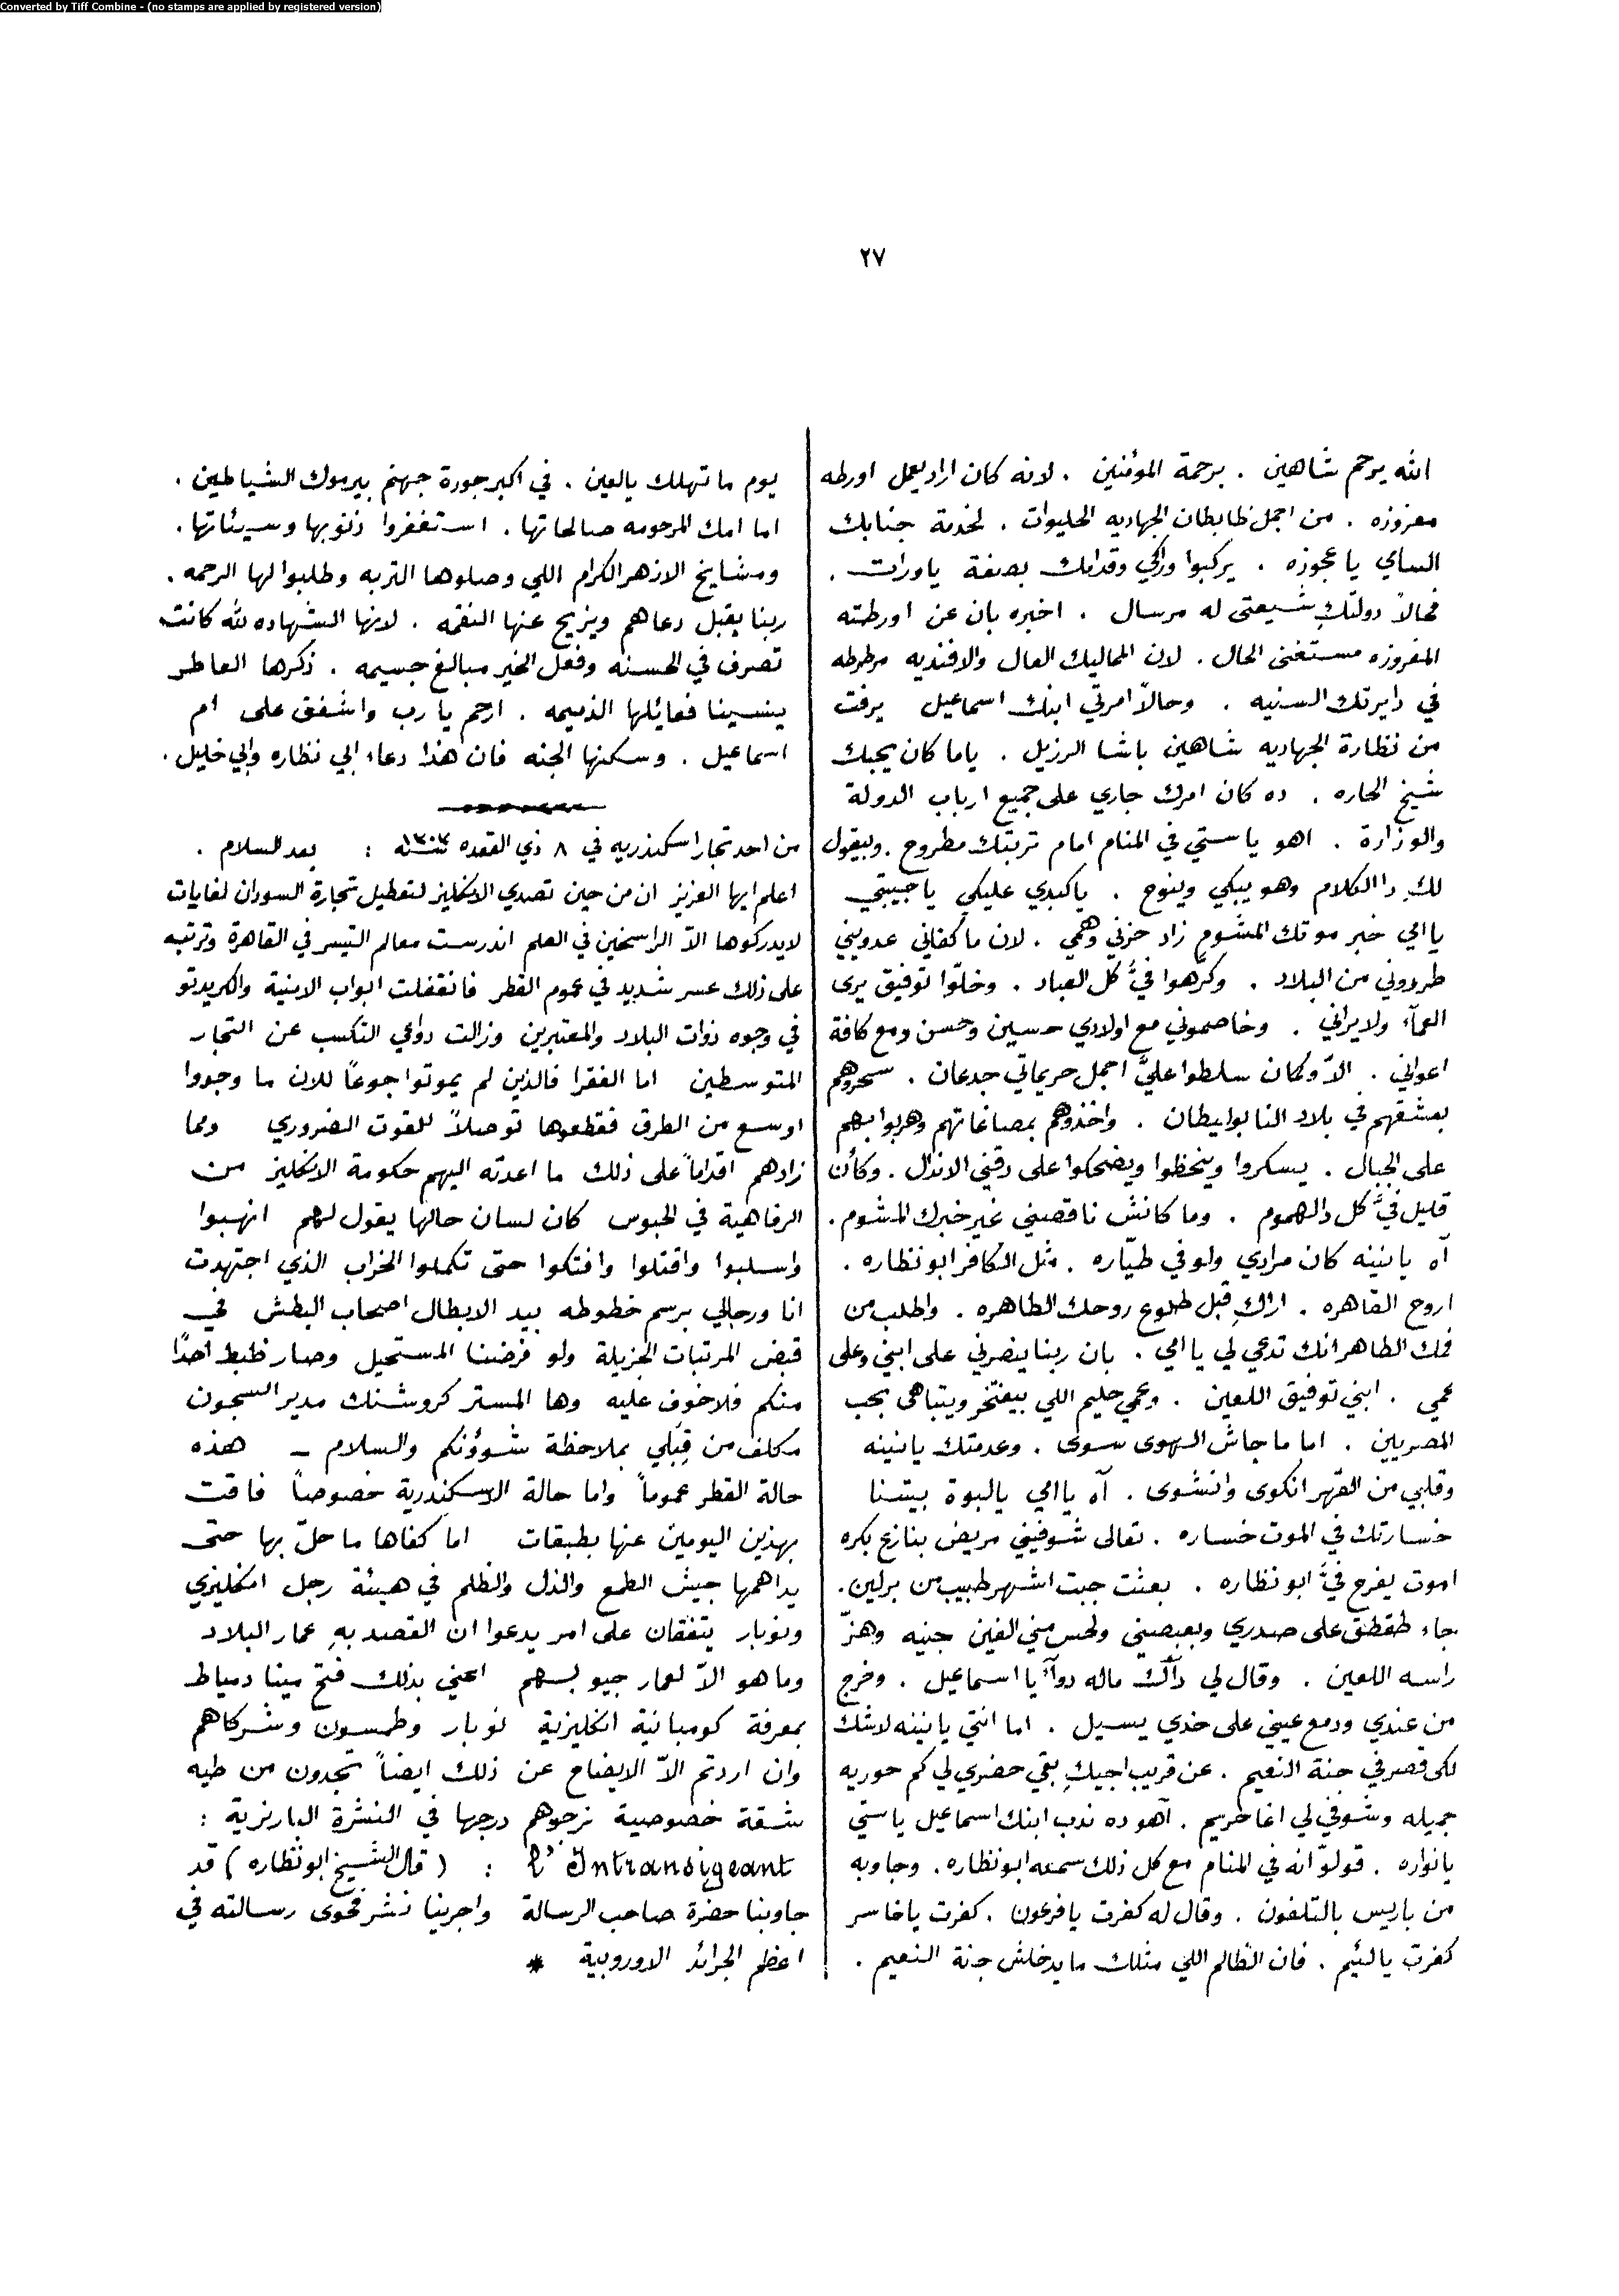 Converted by Tiff Combine - (no stamps are applied by registered version)
٢٧
الله يرحم شاهين . برحمة المؤمنين . لانه كان اراد يعمل اورطه
مفروزه . من اجمل ظابطان الجهاديه الحليوات . لخدمة جنابك
السامي يا عجوزه . يركبوا وراكي وقدامك بصفة ياورات .
فحالاً دولتكِ شيعتي له مرسال . اخبره بان عن اورطته
المفروزه مستغنى الحال . لان المماليك العال والافنديه مرطرطه
في دايرتك السنيه . وحالاً امرتي ابنك اسماعيل يرفت
من نظارة الجهاديه شاهين باشا الرزيل . ياما كان يحبك
شيخ الحاره . ده كان امرك جاري على جميع ارباب الدولة
والوزارة . اهو يا ستي في المنام امام تربتك مطروح . وبيقول
لكِ دا الكلام وهو يبكي وينوح . يا كبدي عليكي يا حبيبتي
يا امي خبر موتك المشوم زاد حزني وهمي . لان ما كفاني عدويني
طردوني من البلاد . وكرّهوا فيَّ كل العباد . وخلّوا توفيق يرى
العمآء ولا يراني . وخاصموني مع اولادي حسين وحسن ومع كافة
اعواني . الاّ وكمان سلطوا عليَّ اجمل حريماتي جدعان . سحروهم
بعشقهم في بلاد النابوليطان . واخذوهم بمصاغاتهم وهربوا بهم
على الجبال . يسكروا وينحظوا ويضحكوا على دقني الاندال . وكأن
قليل فيَّ كل دالهموم . وما كانش ناقصني غير خبرك المشوم .
آه يا نينه كان مرادي ولو في طيّاره . مثل الكافر ابو نظاره .
اروح القاهره . اراكِ قبل طلوع روحك الطاهره . واطلب من
فمك الطاهر انك تدعي لي يا امي . بان ربنا ينصرني على ابني وعلى
عمي . ابني توفيق اللعين . وعمي حليم اللي بيفتخر ويتباهى بحب
المصريين . اما ما جاش الهوى سوى . وعدمتك يا نينه
وقلبي من القهر انكوى وانشوى . آه يا امي يا لبوة بيتنا
خسارتك في الموت خساره . تعالى شوفيني مريض بنازع بكره
اموت يفرح فيَّ ابو نظاره . بعثت جبت اشهر طبيب من برلين .
جاء طقطق على صدري وبعبصني ولحس مني الفين جنيه وهزّ
راسه اللعين . وقال لي داك ماله دوآء يا اسماعيل . وخرج
من عندي ودمع عيني على خدي يسيل . اما انتي يا نينه لاشك
لكي قصر في جنة النعيم . عن قريب اجيكِ بقي حضري لي كم حوريه
جميله وشوفي لي اغا حريم . آهو ده ندب ابنك اسماعيل يا ستي
يا نواره . قولوّ انه في المنام مع كل ذلك سمعه ابو نظاره . وجاوبه
من باريس بالتلفون . وقال له كفرت يا فرعون . كفرت يا خاسر
كفرت يا لئيم . فان الظالم اللي مثلك ما يدخلش جنة النعيم .
يوم ما تهلك يا لعين . في اكبر جورة جهنم بيرموك الشياطين .
اما امك المرحومه صالحاتها . استغفروا ذنوبها وسيئاتها .
ومشايخ الازهر الكرام اللي وصلوها التربه وطلبوا لها الرحمه .
ربنا يقبل دعاهم ويزيح عنها النقمه . لانها الشهاده لله كانت
تصرف في الحسنه وفعل الخير مبالغ جسيمه . ذكرها العاطر
ينسينا فعائلها الذميمه . ارحم يا رب واشفق على ام
اسماعيل . وسكنها الجنه فان هذا دعاء ابي نظاره وابي خليل .
من احد تجار اسكندريه في ٨ ذي القعده سنة ١٣٠٣ : بعد السلام .
اعلم ايها العزيز ان من حين تصدي الانكليز لتعطيل تجارة السودان لغايات
لا يدركوها الاّ الراسخين في العلم اندرست معالم التيسر في القاهرة وترتبه
على ذلك عسر شديد في عموم القطر فانقفلت ابواب الامنية والكريدتو
في وجوه ذوات البلاد والمعتبرين وزالت دواعي التكسب عن التجار
المتوسطين اما الفقرا فالذين لم يموتوا جوعاً للان ما وجدوا
اوسع من الطرق فقطعوها توصلاً للقوت الضروري ومما
زادهم اقداماً على ذلك ما اعدته اليهم حكومة الانكليز من
الرفاهية في الحبوس كان لسان حالها يقول لهم انهبوا
واسلبوا واقتلوا وافتكوا حتى تكملوا الخراب الذي اجتهدت
انا ورجالي برسم خطوطه بيد الابطال اصحاب البطش في
قبض المرتبات الجزيلة ولو فرضنا المستحيل وصار ظبط احداً
منكم فلا خوف عليه وها المستر كروشنك مدير السجون
مكلف من قِبَلي بملاحظة شوؤنكم والسلام – هذه
حالة القطر عموماً واما حالة الاسكندرية خصوصاً فاقت
بهذين اليومين عنها بطبقات اما كفاها ما حلّ بها حتى
يداهمها جيش الطمع والذل والظلم في هيئة رجل انكليزي
ونوبار يتفقان على امر يدعوا ان القصد بهِ عمار البلاد
وما هو الاّ لعمار جيوبهم اعني بذلك فتح مينا دمياط
بمعرفة كومبانية انكليزية نوبار وطمسون وشركاهم
وان اردتم الاّ الايضاح عن ذلك ايضاً تجدون من طيه
شقة خصوصية نرجوهم درجها في النشرة الباريزية :
l'Intransigeant : ( قال الشيخ ابو نظاره ) قد
جاوبنا حضرة صاحب الرسالة واجرينا نشر فحوى رسالته في
اعظم الجرائد الاوروبية *